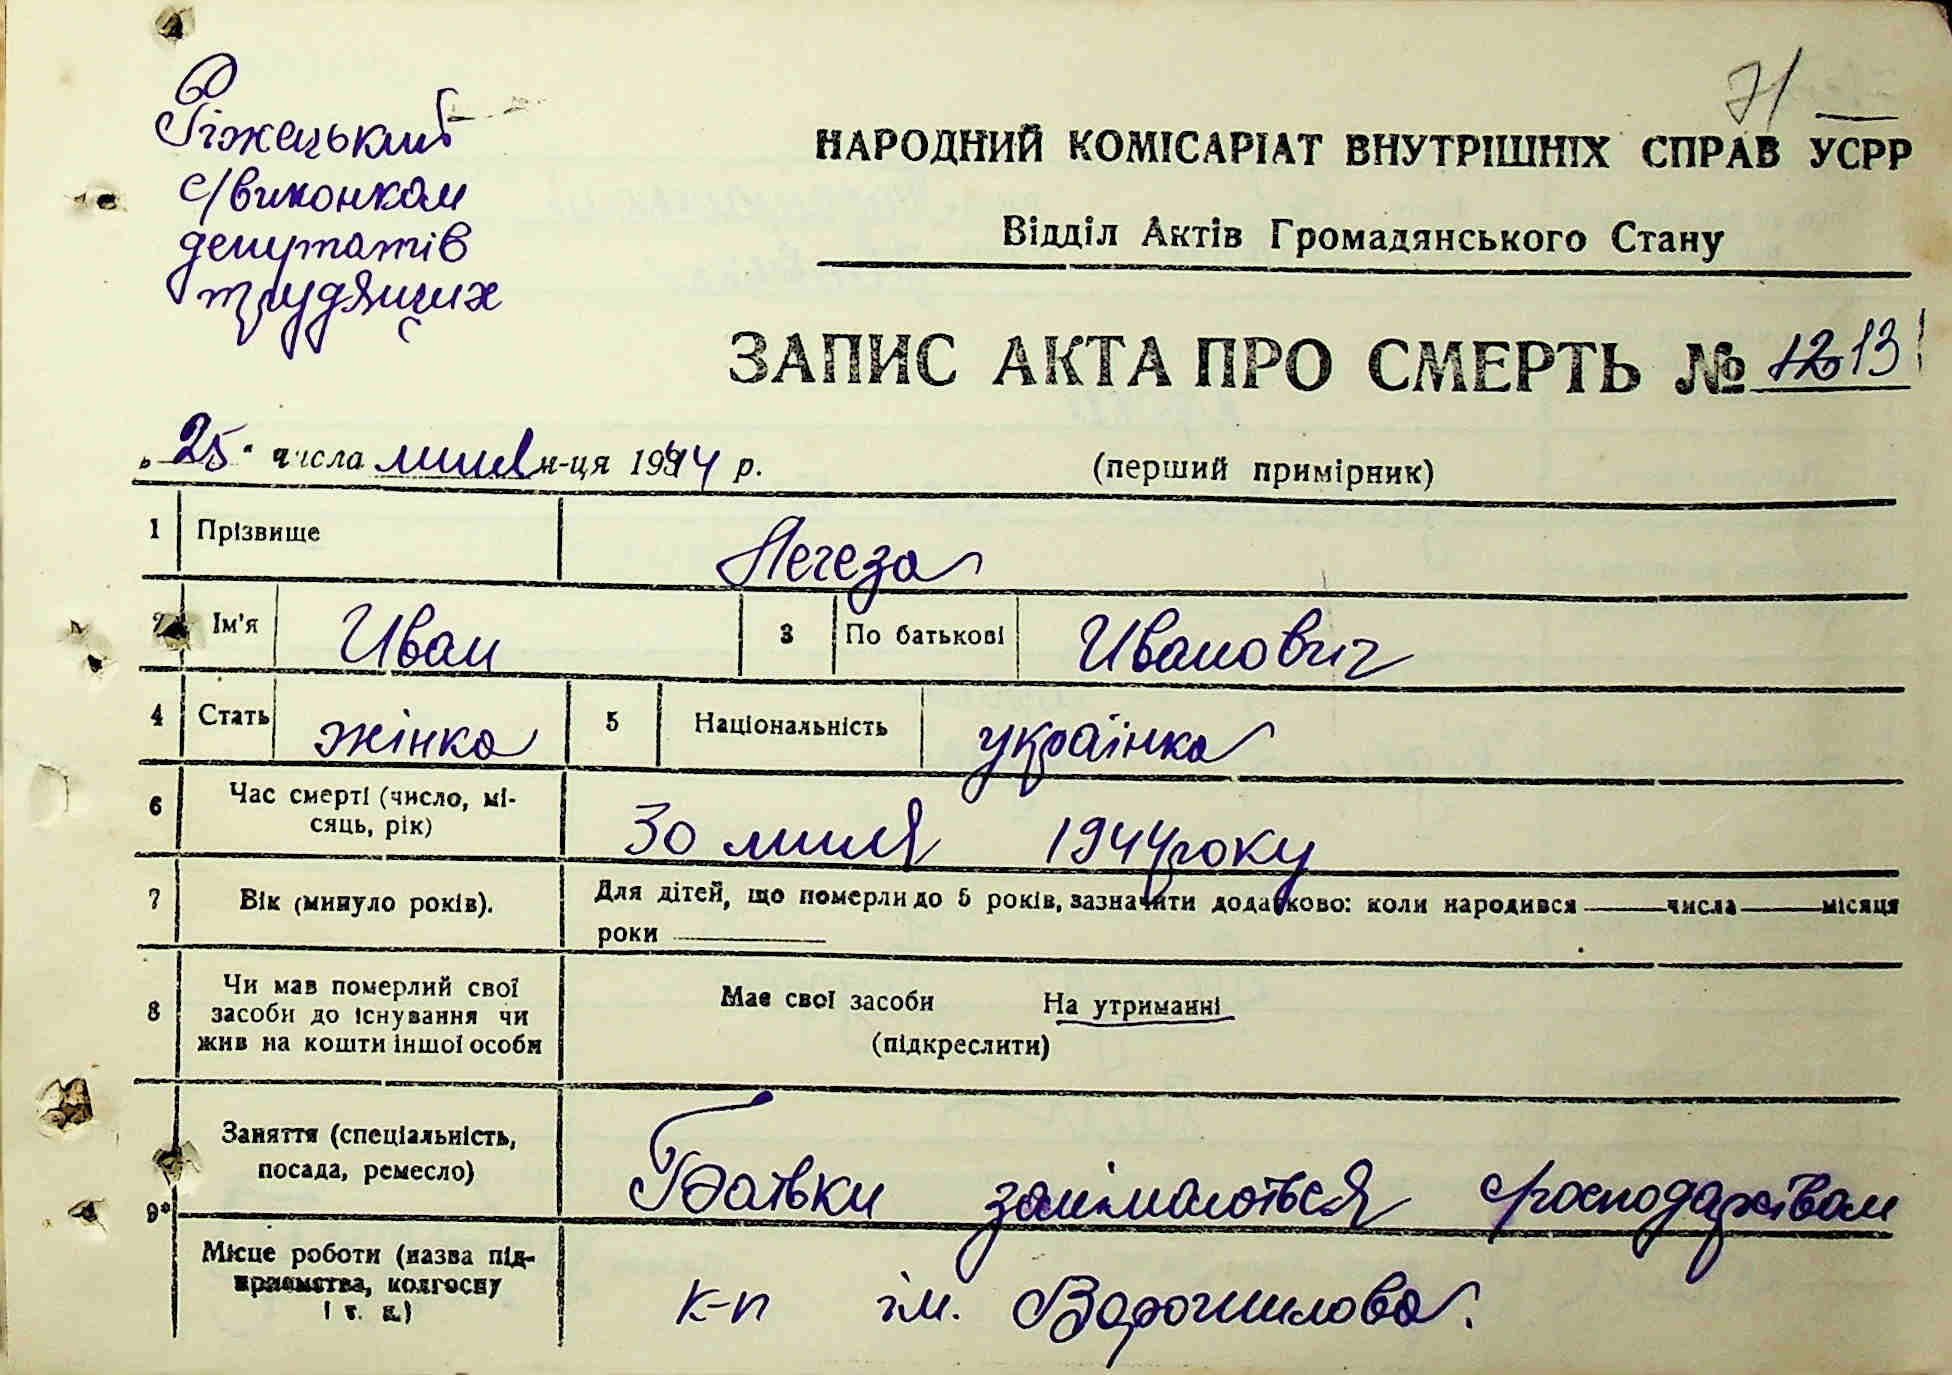 71
Ріжецький
с/виконком
депутатів
трудящих
НАРОДНИЙ КОМІСАРІАТ ВНУТРІШНІХ СПРАВ УСРР
Відділ Актів Громадянського Стану
ЗАПИС АКТА ПРО СМЕРТЬ № 12 13
„25“ числа липня м-ця 1944 р.
(перший примірник)
1 Прізвище Легеза
2 Ім'я Иван 3 По батькові Иванович
4 Стать жінка 5 Національність українка
6 Час смерті (число, мі-
сяць, рік) 30 липня 1944 року
7 Вік (минуло років). Для дітей, що померли до 5 років, зазначити додатково: коли народився ——числа——місяця
роки ————
8 Чи мав померлий свої
засоби до існування чи
жив на кошти іншої особи
Має свої засоби На утриманні
(підкреслити)
9* Заняття (спеціальність,
посада, ремесло) Батьки занімаються господарством
Місце роботи (назва під-
приємства, колгоспу
і т. д.) к-п ім. Ворошилова.